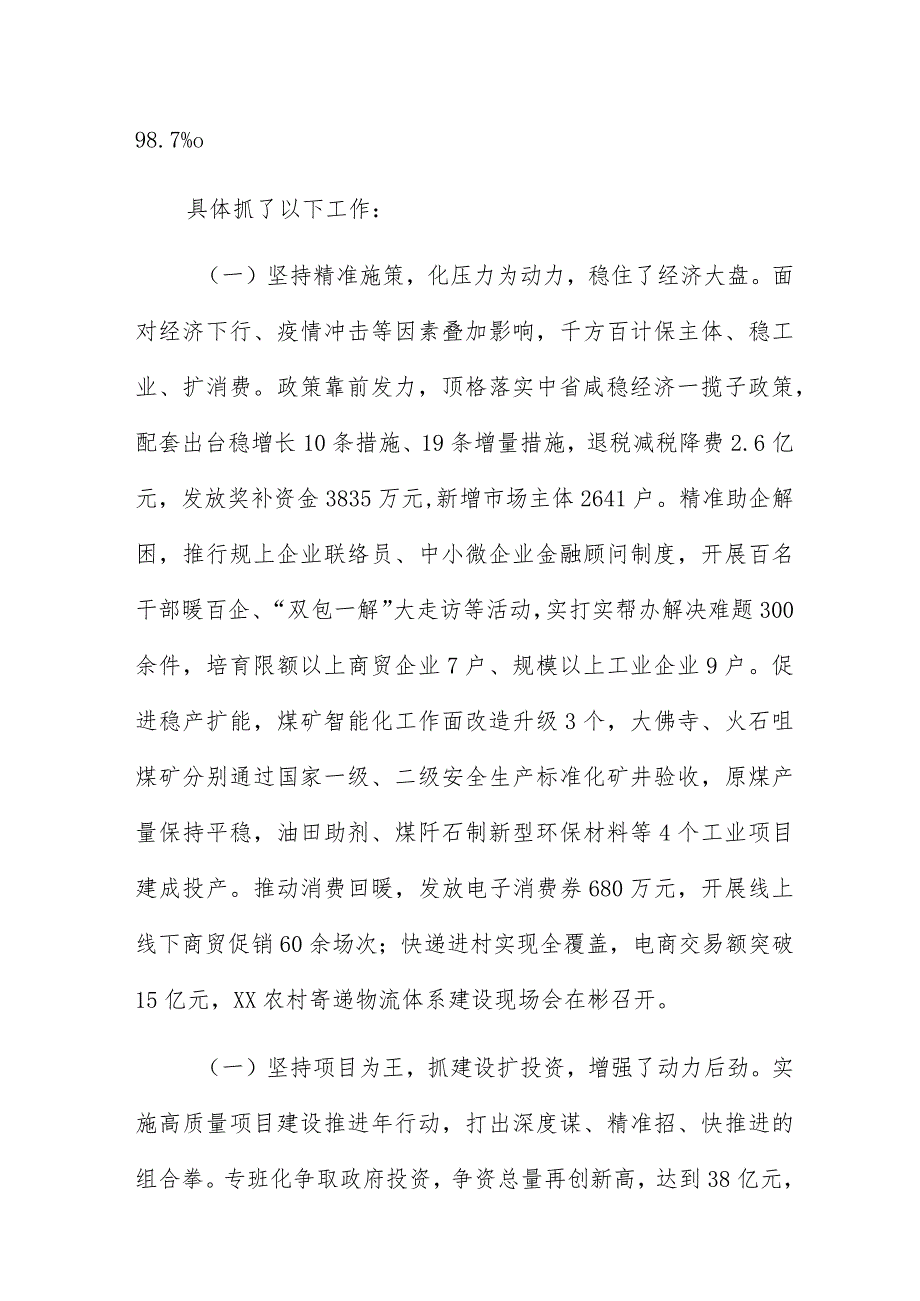 98.7%o
具体抓了以下工作：
（一）坚持精准施策，化压力为动力，稳住了经济大盘。面
对经济下行、疫情冲击等因素叠加影响，千方百计保主体、稳工
业、扩消费。政策靠前发力，顶格落实中省咸稳经济一揽子政策，
配套出台稳增长 10 条措施、19 条增量措施，退税减税降费 2.6 亿
元，发放奖补资金 3835 万元,新增市场主体 2641 户。精准助企解
困，推行规上企业联络员、中小微企业金融顾问制度，开展百名
干部暖百企、“双包一解”大走访等活动,实打实帮办解决难题 300
余件，培育限额以上商贸企业 7 户、规模以上工业企业 9 户。促
进稳产扩能，煤矿智能化工作面改造升级 3 个，大佛寺、火石咀
煤矿分别通过国家一级、二级安全生产标准化矿井验收，原煤产
量保持平稳，油田助剂、煤阡石制新型环保材料等 4 个工业项目
建成投产。推动消费回暖，发放电子消费券 680 万元，开展线上
线下商贸促销 60 余场次；快递进村实现全覆盖，电商交易额突破
15 亿元，XX 农村寄递物流体系建设现场会在彬召开。
（一）坚持项目为王，抓建设扩投资，增强了动力后劲。实
施高质量项目建设推进年行动，打出深度谋、精准招、快推进的
组合拳。专班化争取政府投资，争资总量再创新高，达到 38 亿元，